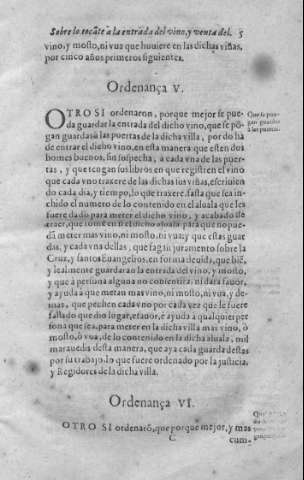 Sobre lo tocãte a la entrada del vino, y venta del. 5
vino, y mosto, ni vua que huuiere en las dichas viñas,
por cinco años primeros siguientes.
Ordenança V.
OTRO SI ordenaron, porque mejor se pue-
da guardar la entrada del dicho vino, que se põ-
gan guardas à las puertas de la dicha villa, por do hà
de entrar el dicho vino, en esta manera que esten dos
homes buenos, sin sospecha, à cada vna de las puer-
tas, y que tengan sus libros en que registren el vino
que cada vno traxere de las dichas sus viñas, escriuien
do cada dia, y tiempo, lo que traxere, fasta que sea in-
chido el numero de lo contenido en el aluala que les
fuere dado para meter el dicho vino, y acabado de
traer, que tomen el dicho aluala para que no pue-
dã meter mas vino, ni mosto, ni vua: y que estas guar
das, y cada vna dellas, que fagan juramento sobre la
Cruz, y santos Euangelios, en forma deuida, que biẽ,
y lealmente guardaràn la entrada del vino, y mosto,
y que à persona alguna no consentirà, ni darà fauor,
y ayuda à que metan mas vino, ni mosto, ni vua, y de-
mas, que pechen cada vno por cada vez que le fuere
fallado que dio lugar, e fauor, è ayuda à qualquier per
sona que sea, para meter en la dicha villa mas vino, ò
mosto, ò vua, de lo contenido en la dicha aluala, mil
marauedis desta manera, que aya cada guarda destas
por su trabajo, lo que fuere ordenado por la justicia,
y Regidores de la dicha villa.
Que se pon-
gan guardas
à las puertas.
Ordenança VI.
OTRO SI ordenarõ, que porque mejor, y mas
C
cum-